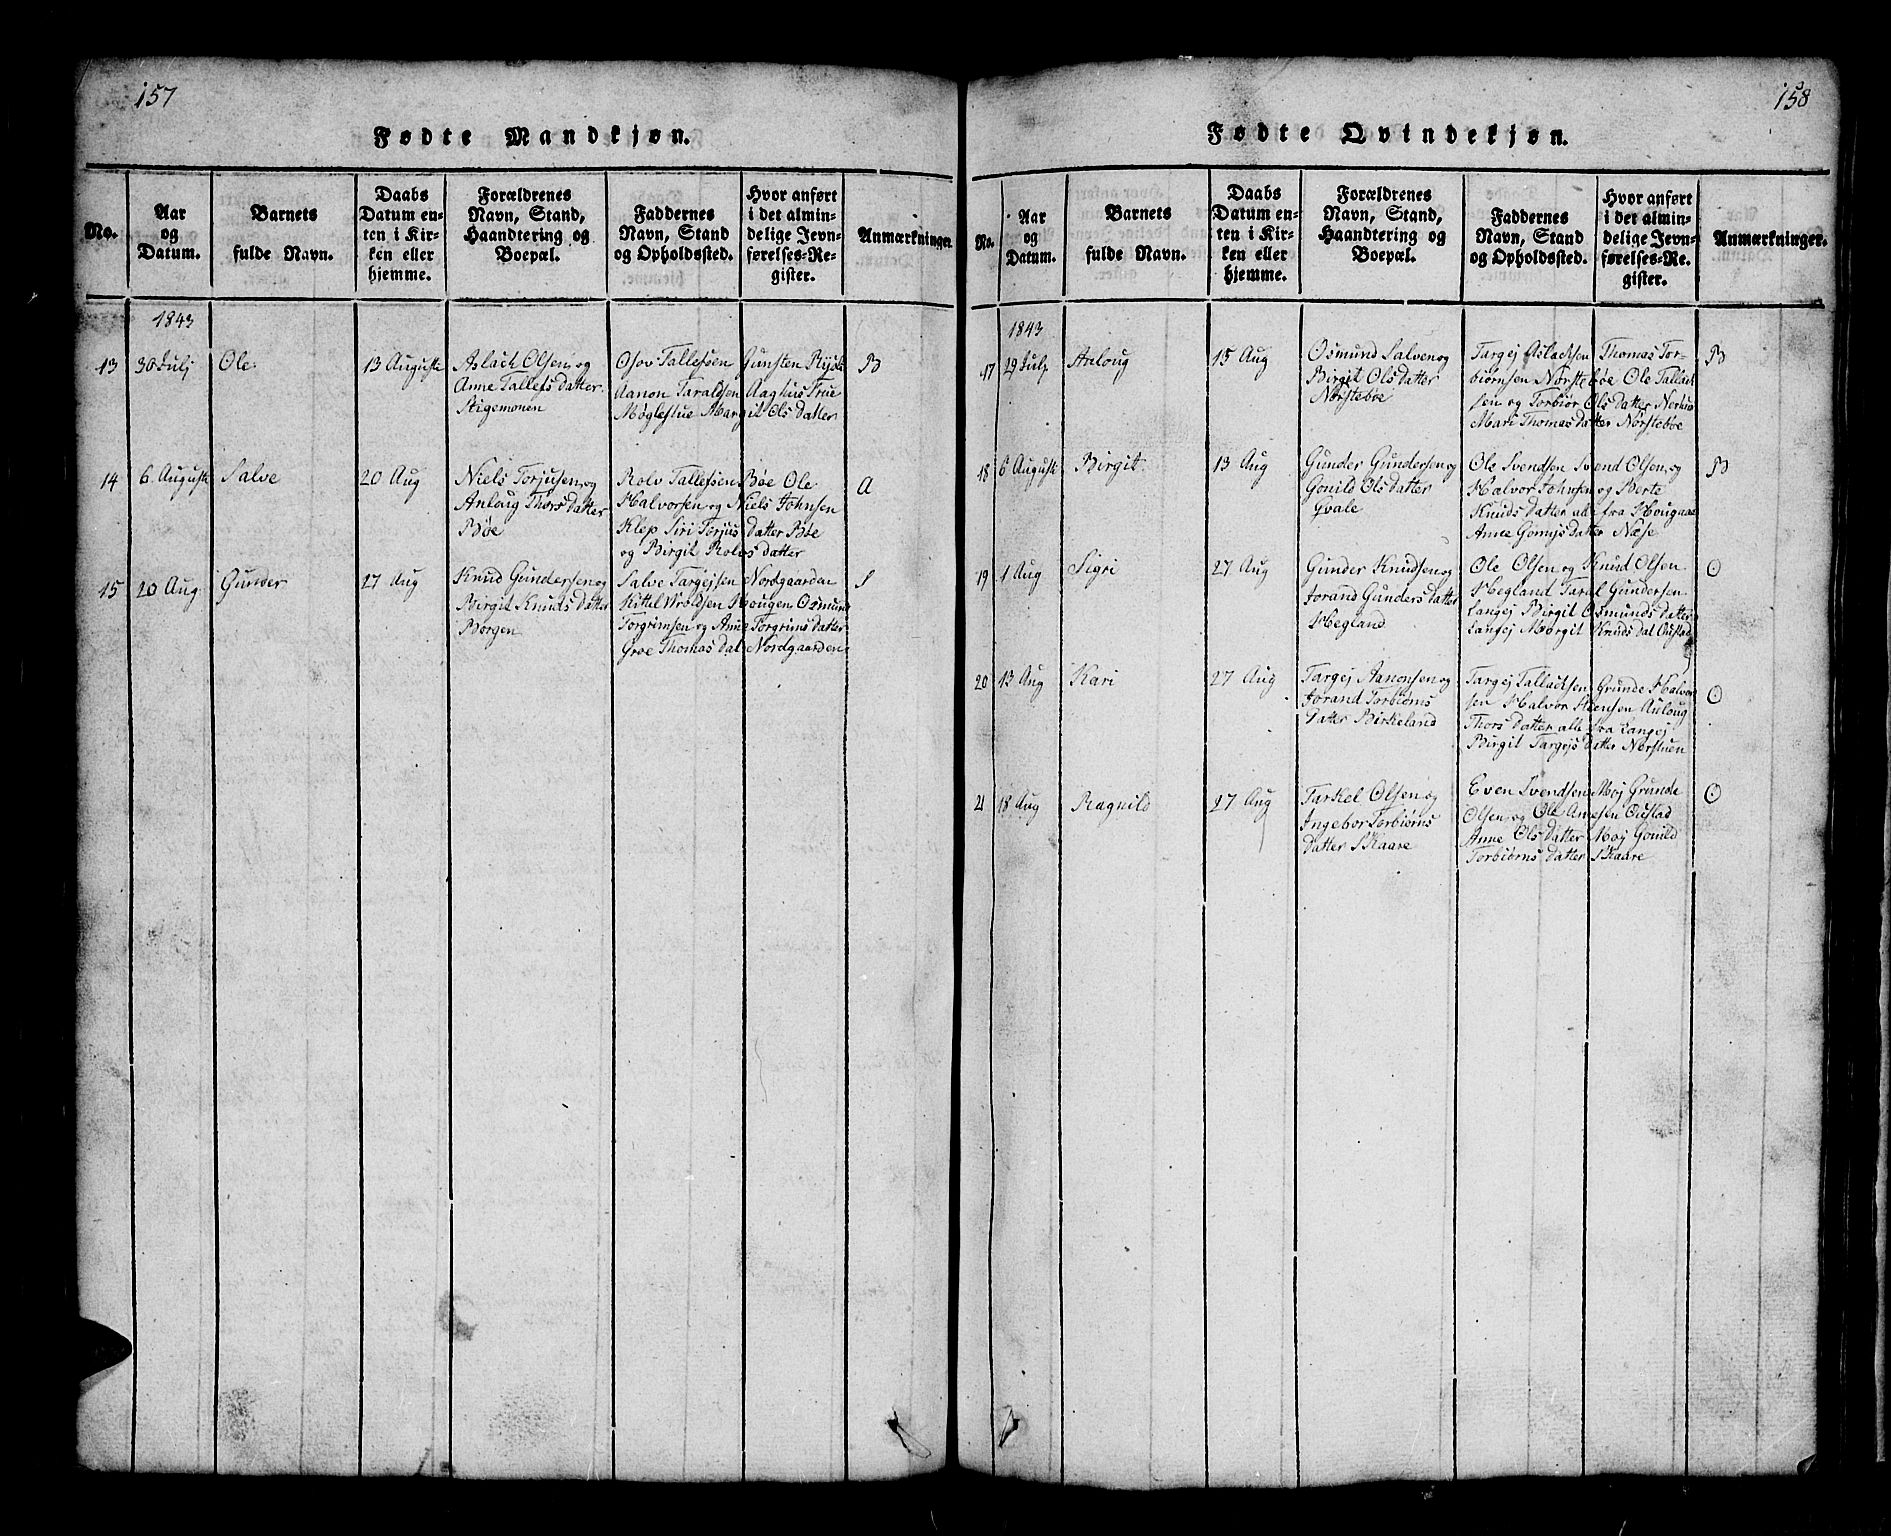 157
Fødte Mandkjøn.
No.
Aar
og
Datum.
Barnets
fulde Navn.
Daabs
Datum en-
ten i Kir-
ken eller
hjemme.
Forældrenes
Navn, Stand,
Haandtering og
Boepæl.
Faddernes
Navn, Stand
og Opholdssted.
Hvor anført
i det almin-
delige Jevn-
førelses-Re-
gister.
Anmærkninger.
1843
13 30 Julj Ole 13 Auguste
Aslach Olsen og
Anne Tallefs datter
Stigemonen
Osov Tallefsen Gunsten
Aanon Taraldsen Aaghus True
Møglestue Margit Ols datter
B
14 6 Auguste Salve 20 Aug
Niels Torjusen og
Anloug Thors datter
Bøe
Rolv Tallefsen Bøe Ole
Halvorsen og Niels Johnsen
Klep Siri Torjus datter Bøe
og Birgit Rolvs datter
A
15 20 Aug Gunder 27 Aug
Knud Gundersen og
Birgit Knuds datter
Borgen
Salve Targejsen Nordgaarden
Kittel Wroldsen Hougen Osmund
Torgrimsen og Anne Torgrims datter
Groe Thomas dat Nordgaarden
S
158
Fødte Qvindekjøn.
No.
Aar
og
Datum.
Barnets
fulde Navn.
Daabs
Datum en-
ten i Kir-
ken eller
hjemme.
Forældrenes
Navn, Stand,
Haandtering og
Boepæl.
Faddernes
Navn, Stand
og Opholdssted.
Hvor anført
i det almin-
delige Jevn-
førelses-Re-
gister.
Anmærkninger.
1843
17 29 Julj Anloug 15 Aug
Osmund Salven og
Birgit Ols datter
Nørstebøe
Targej Aslachsen Thomas Tor-
biørnsen Nørstebøe Ole Tallack
sen og Torbiør Ols datter
Mari Thomas datter Nørstebøe
B
18 6 Auguste Birgit 13 Aug
Gunder Gundersen og
Gonild Ols datter
Qvale
Ole Svendsen Svend Olsen og
Halvor Johnsen og Berte
Knuds datter alle fra Hougaas
Anne datter Næse
B
19 1 Aug Sigri 27 Aug
Gunder Knudsen og
Jorand Gunders datter
Hegland
Ole Olsen og Knud Olsen
Hegland Taral Gundersen
Langej Birgit Osmunds datter
Langej Margit Knuds dat Oustad
O
20 13 Aug Kari 27 Aug
Targej Aanonsen og
Jorand Torbiørns
datter Birkeland
Targej Tallachsen Grunde Halvor
sen Halvor Steensen Auloug
Thors datter alle fra Langej
Birgit Targejs datter Norstuen
O
21 18 Aug Ragnild 27 Aug
Tarkel Olsen og
Ingebor Torbiørns
datter Skaare
Even Svendsen Moj Grunde
Olsen og Ole Oustad
Anne Ols datter Moj Gonild
Torbiørns datter Skaare
O